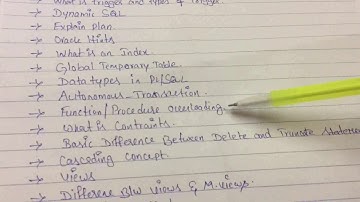 → What is trigger and types of trigger.
→ Dynamic SQL
→ Explain plan.
→ Oracle Hints
→ What is an Index.
→ Global Temporary Table.
→ Data types in PL/SQL
→ Autonomous Transaction.
→ Function/Procedure Overloading
→ What is Contraints.
→ Basic Difference Between Delete and Truncate Statement
→ Cascading Concept.
→ Views
→ Difference B/w Views & M.Views.